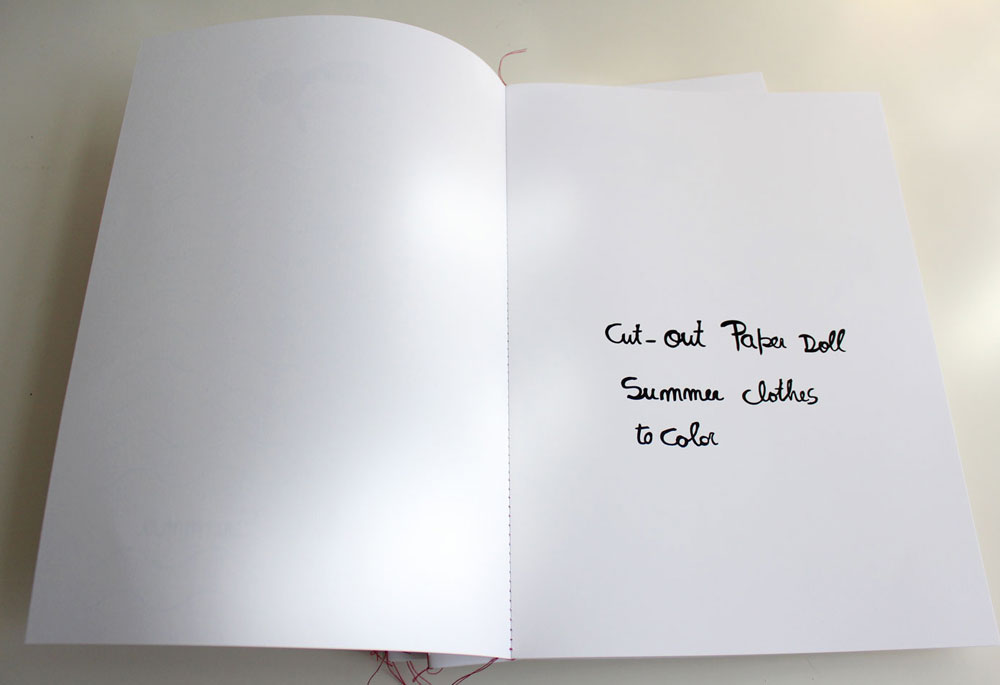 Cut-out Paper Doll
Summer clothes
to Color